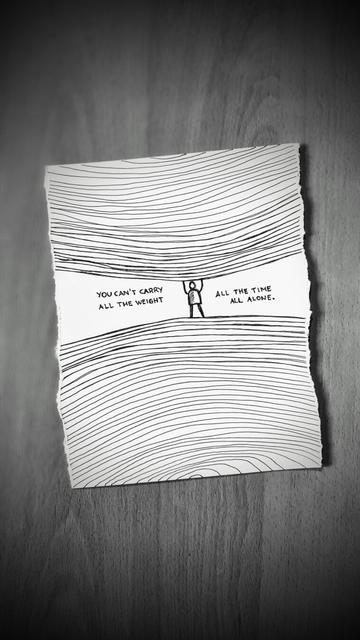 YOU CAN'T CARRY
ALL THE WEIGHT
ALL THE TIME
ALL ALONE.